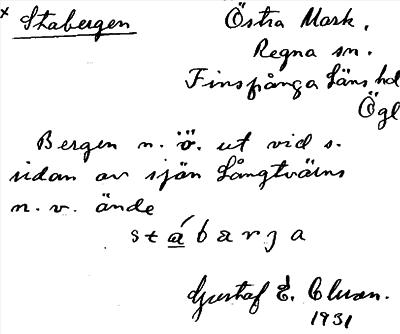 x Stabergen
Östra Mark,
Regna sn.
Finspånga läns hd
Ögl
Bergen n. ö. ut vid s.
sidan av sjön Långtvärns
n. v. ände
stábarga
Gustaf E.
1931